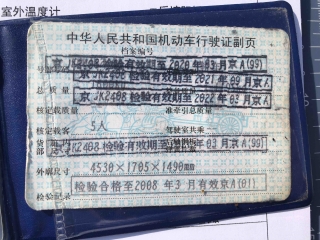 室外温度计
中华人民共和国机动车行驶证副页
档案编号
京JK2408 检验有效期至2020年03月京A(99)
京JK2408 检验有效期至2021年09月京A
总质量
京JK2408 检验有效期至2022年03月京A
核定载质量 准牵引总质量
核定载客 5人 驾驶室共乘
JK2408 检验有效期至 年03月京A(99)
外廓尺寸 4530×1705×1490mm
检验合格至2008年3月有效京A(01)
检验记录